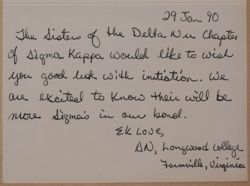 29 Jan 90
The Sisters of the Delta Nu Chapter
of Sigma Kappa would like to wish
you good luck with initiation. We
are excited to know their will be
more Sigma's in our bond.
EK Love,
ΔN, Longwood College
Farmville, Virginia